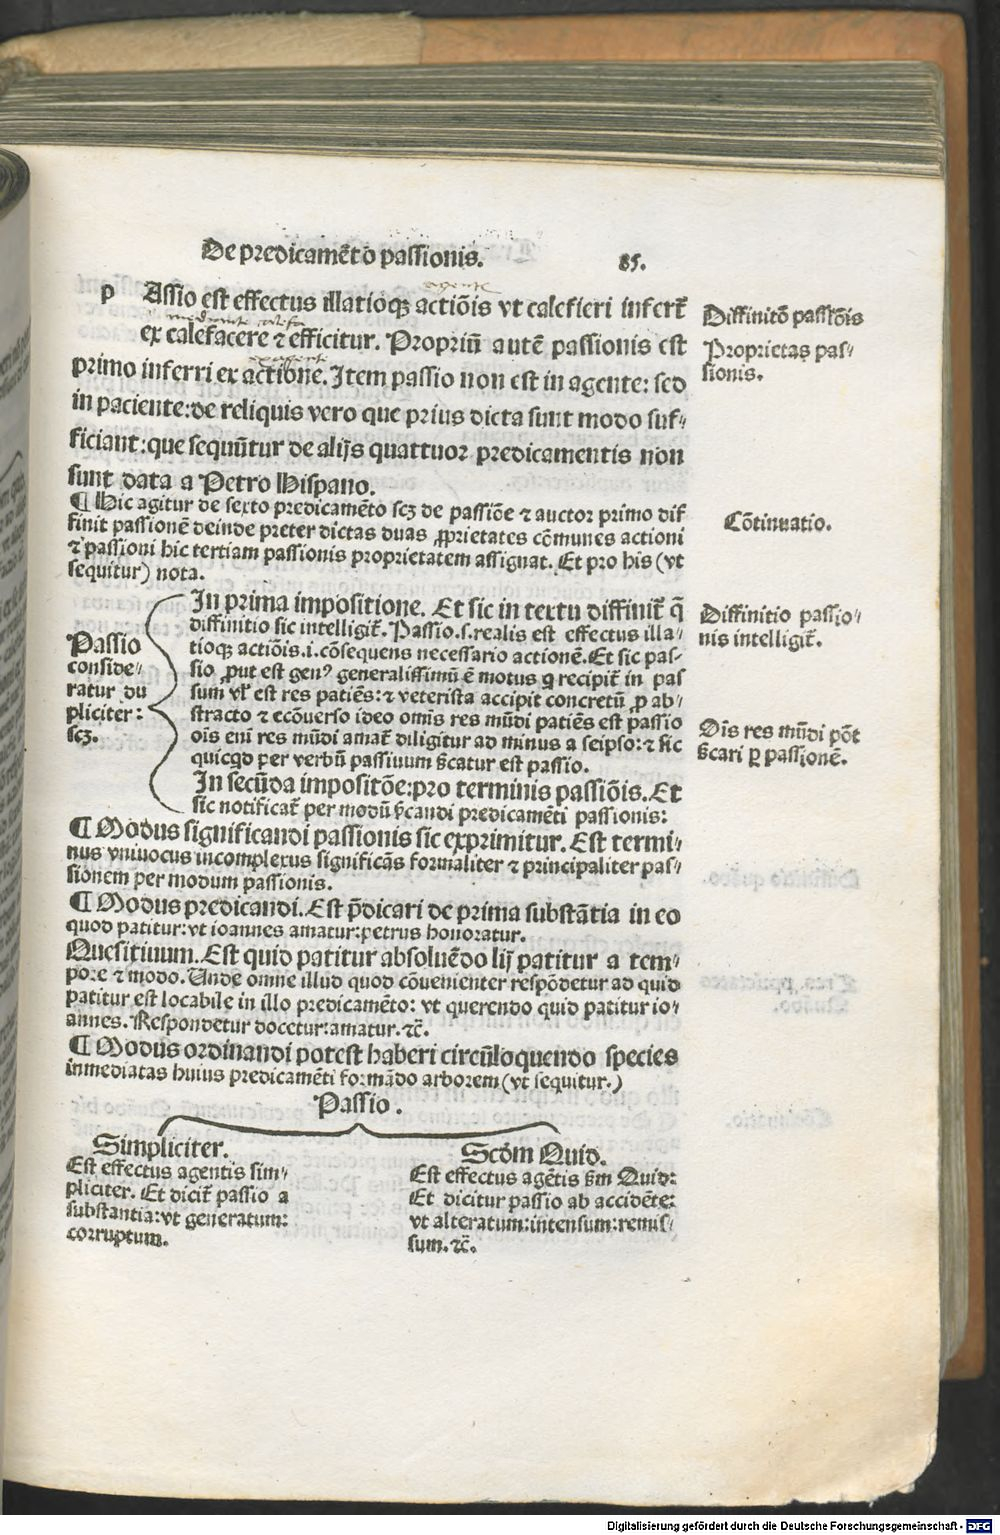 De predicamēto passionis. 85.
p Assio est effectus illatioqꝫ actiōis vt calefieri infert̄
agente
ex calefacere ⁊ efficitur. Propriū autē passionis est
primo inferri ex actione. Item passio non est in agente: sed
in paciente: de reliquis vero que prius dicta sunt modo suf⸗
ficiant: que sequūtur de alijs quattuor predicamentis non
sunt data a Petro Hispano.
¶ Hic agitur de sexto predicamēto scꝫ de passiōe ⁊ auctor primo dif
finit passionē deinde preter dictas duas ꝓprietates cōmunes actioni
⁊ passioni hic tertiam passionis proprietatem assignat. Et pro his (vt
sequitur) nota.
Passio
conside⸗
ratur du
pliciter:
scꝫ.
In prima impositione. Et sic in textu diffinit̄ q̄
diffinitio sic intelligit̄. Passio .s. realis est effectus illa⸗
tioqꝫ actiōis .i. cōsequens necessario actionē. Et sic pas⸗
sio ꝓut est genꝰ generalissimū ē motus q recipit̄ in pas
sum vl̄ est res patiēs: ⁊ veterista accipit concretū ꝓ ab⸗
stracto ⁊ ecōuerso ideo omīs res mūdi patiēs est passio
oīs enī res mūdi amat̄ diligitur ad minus a seipso: ⁊ sic
quicqd per verbū passiuum s̄catur est passio.
In secūda impositōe: pro terminis passiōis. Et
sic notificat̄ per modū s̄candi predicamēti passionis:
¶ Modus significandi passionis sic exprimitur. Est termi⸗
nus vniuocus incomplexus significās formaliter ⁊ principaliter pas⸗
sionem per modum passionis.
¶ Modus predicandi. Est p̄dicari de prima substātia in eo
quod patitur: vt ioannes amatur: petrus honoratur.
Quesitiuum. Est quid patitur absoluēdo lij patitur a tem⸗
pore ⁊ modo. Unde omne illud quod cōuenienter respōdetur ad quid
patitur est locabile in illo predicamēto: vt querendo quid patitur io⸗
annes. Respondetur docetur: amatur. ⁊c̄.
¶ Modus ordinandi potest haberi circūloquendo species
inmediatas huius predicamēti formādo arborem (vt sequitur.)
Passio.
Simpliciter.
Est effectus agentis sim⸗
pliciter. Et dicit̄ passio a
substantia: vt generatum:
corruptum.
Scd̄m Quid.
Est effectus agētis s̄m Quid:
Et dicitur passio ab accidēte:
vt alteratum: intensum: remis⸗
sum. ⁊c̄.
Diffinitō passiōis
Proprietas pas⸗
sionis.
Cōtinuatio.
Diffinitio passio⸗
nis intelligit̄.
Oīs res mūdi pōt
s̄cari ꝑ passionē.
Digitalisierung gefördert durch die Deutsche Forschungsgemeinschaft - DFG